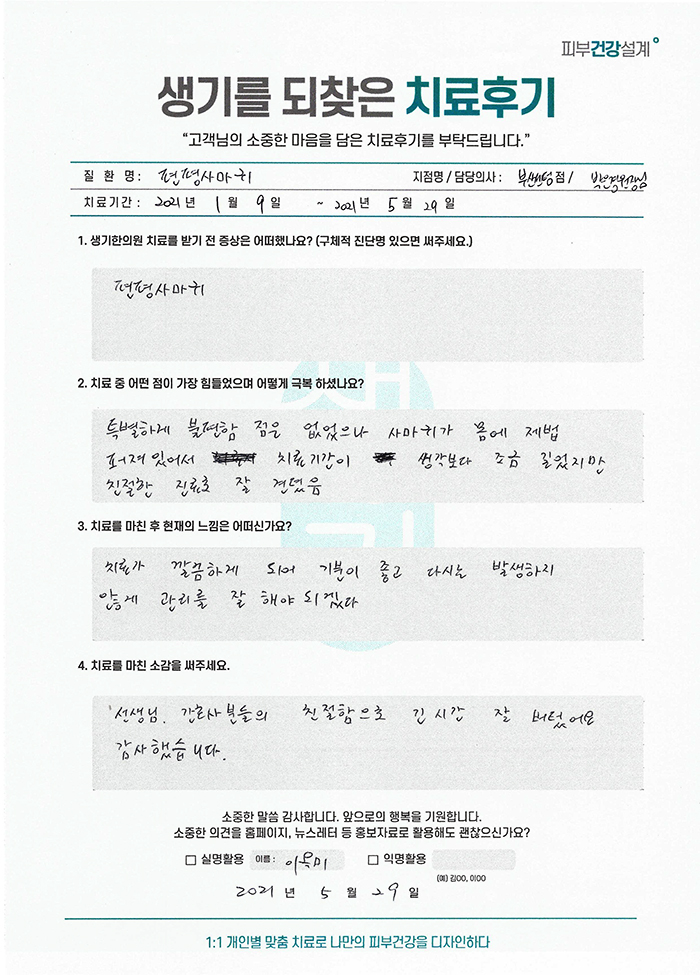 피부건강설계
생기를 되찾은 치료후기
“고객님의 소중한 마음을 담은 치료후기를 부탁드립니다.”
질 환 명 : 편평사마귀 지점명 / 담당의사 : 부산센텀점 /
치료기간 : 2021 년 1 월 9 일 ~ 2021 년 5 월 29 일
1. 생기한의원 치료를 받기 전 증상은 어떠했나요? (구체적 진단명 있으면 써주세요.)
편평사마귀
2. 치료 중 어떤 점이 가장 힘들었으며 어떻게 극복 하셨나요?
특별하게 불편함 점은 없었으나 사마귀가 몸에 제법
퍼져있어서 치료기간이 생각보다 조금 길었지만
친절한 진료로 잘 견뎠음
3. 치료를 마친 후 현재의 느낌은 어떠신가요?
치료가 깔끔하게 되어 기분이 좋고 다시는 발생하지
않게 관리를 잘 해야 되겠다
4. 치료를 마친 소감을 써주세요.
선생님. 간호사분들의 친절함으로 긴 시간 잘 버텼어요
감사했습니다.
소중한 말씀 감사합니다. 앞으로의 행복을 기원합니다.
소중한 의견을 홈페이지, 뉴스레터 등 홍보자료로 활용해도 괜찮으신가요?
실명활용 이름 : 익명활용
(예) 김OO, 이OO
2021 년 5 월 29 일
1:1 개인별 맞춤 치료로 나만의 피부건강을 디자인하다